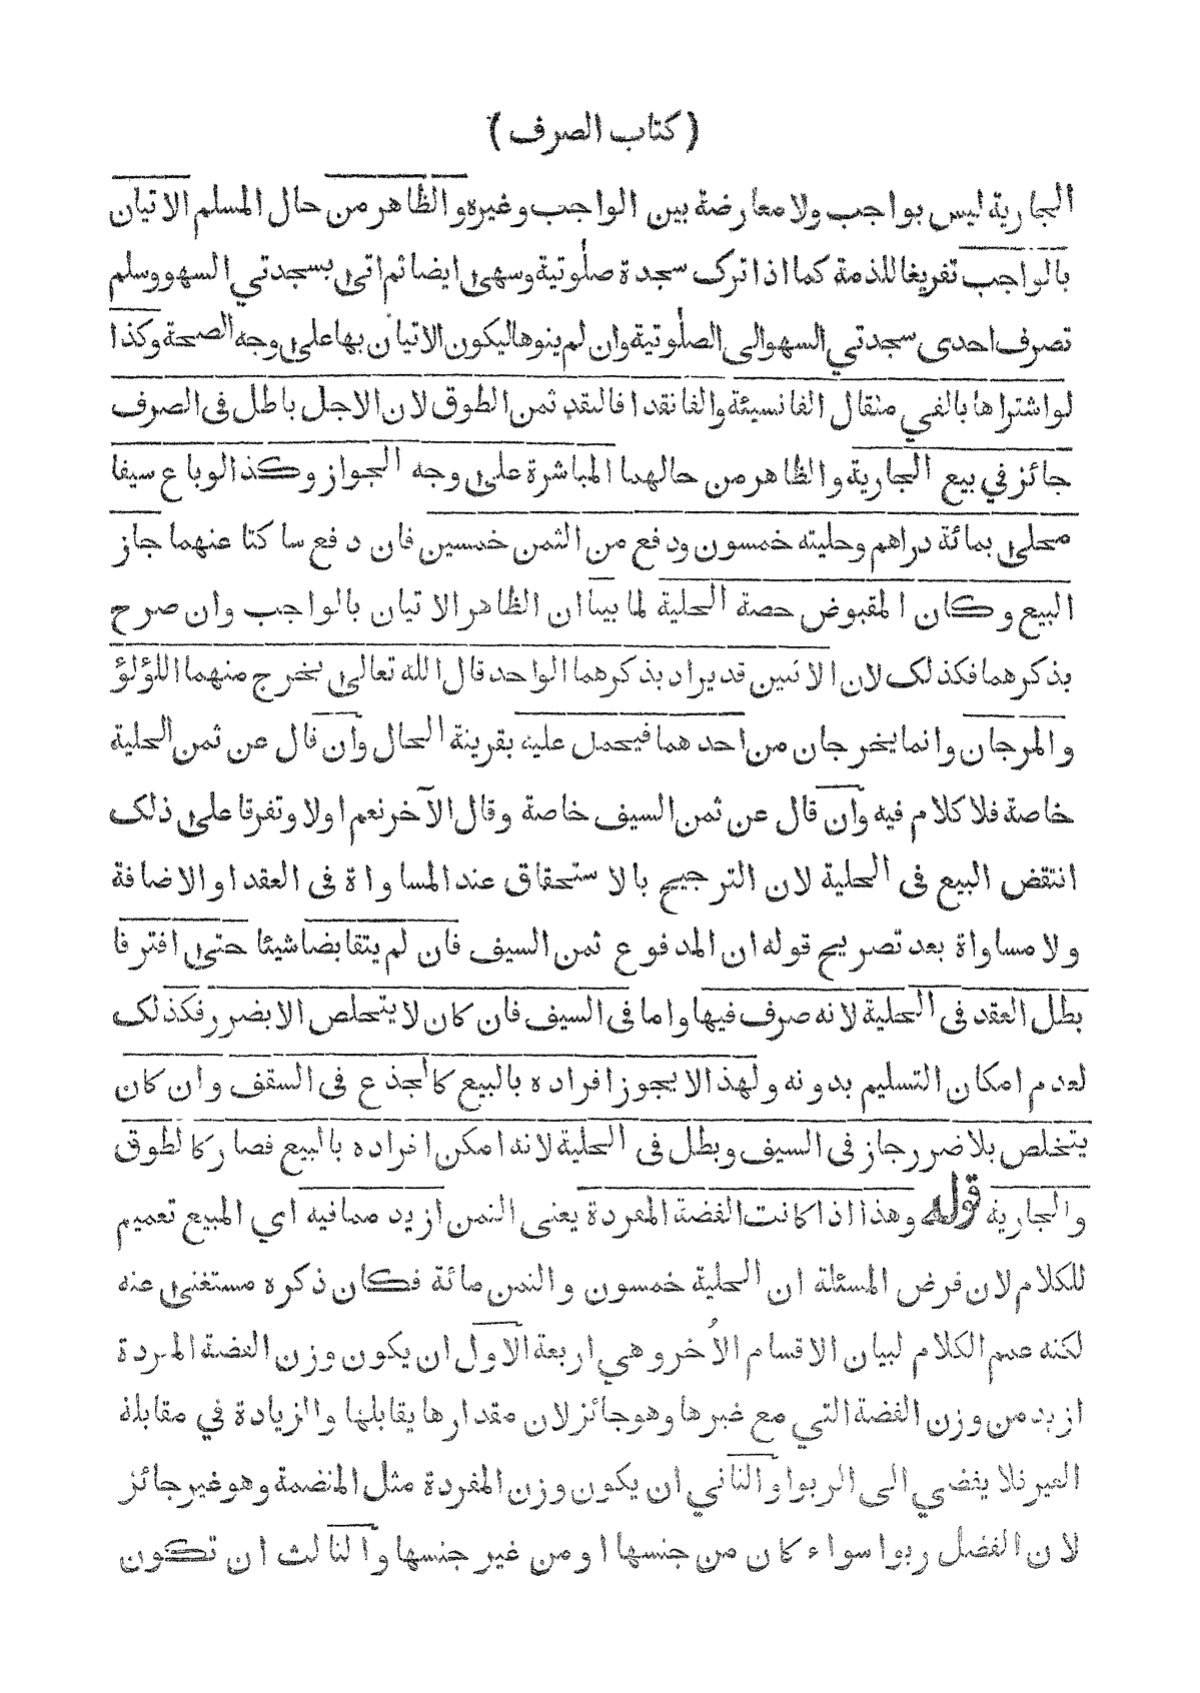 ( كتاب الصرف )
الجارية ليس بواجب ولا معارضة بين الواجب وغيره والظاهر من حال المسلم الاتيان
بالواجب تفريغا للذمة كما اذا ترك سجدة صلوتية وسهى ايضا ثم اتى بسجدتي السهو وسلم
تصرف احدى سجدتي السهو الى الصلوتية وان لم ينوها ليكون الاتيان بها على وجه الصحة وكذا
لو اشتراها بالفي مثقال الفا نسيئة والفا نقدا فالنقد ثمن الطوق لان الاجل باطل فى الصرف
جائز في بيع الجارية والظاهر من حالهما المباشرة على وجه الجواز وكذا لو باع سيفا
محلى بمائة دراهم وحليته خمسون ودفع من الثمن خمسين فان دفع ساكتا عنهما جاز
البيع وكان المقبوض حصة الحلية لما بينا ان الظاهر الاتيان بالواجب وان صرح
بذكرهما فكذلك لان الاثنين قد يراد بذكرهما الواحد قال الله تعالى يخرج منهما اللؤلؤ
والمرجان وانما يخرجان من احدهما فيحمل عليه بقرينة الحال وان قال عن ثمن الحلية
خاصة فلا كلام فيه وان قال عن ثمن السيف خاصة وقال الآخر نعم او لا وتفرقا على ذلك
انتقض البيع فى الحلية لان الترجيح بالاستحقاق عند المساواة فى العقد او الاضافة
ولا مساواة بعد تصريح قوله ان المدفوع ثمن السيف فان لم يتقابضا شيئا حتى افترقا
بطل العقد فى الحلية لانه صرف فيها واما فى السيف فان كان لا يتخلص الا بضرر فكذلك
لعدم امكان التسليم بدونه ولهذا لا يجوز افراده بالبيع كالجذع فى السقف وان كان
يتخلص بلا ضرر جاز فى السيف وبطل فى الحلية لانه امكن افراده بالبيع فصار كالطوق
والجارية قوله وهذا اذا كانت الفضة المفردة يعنى الثمن ازيد مما فيه اي المبيع تعميم
للكلام لان فرض المسئلة ان الحلية خمسون والثمن مائة فكان ذكره مستغنى عنه
لكنه عمم الكلام لبيان الاقسام الأخر وهي اربعة الاول ان يكون وزن الفضة المفردة
ازيد من وزن الفضة التي مع غيرها وهو جائز لان مقدارها يقابلها والزيادة في مقابلة
الغير فلا يفضي الى الربوا والثاني ان يكون وزن المفردة مثل المنضمة وهو غير جائز
لان الفضل ربوا سواء كان من جنسها او من غير جنسها والثالث ان تكون